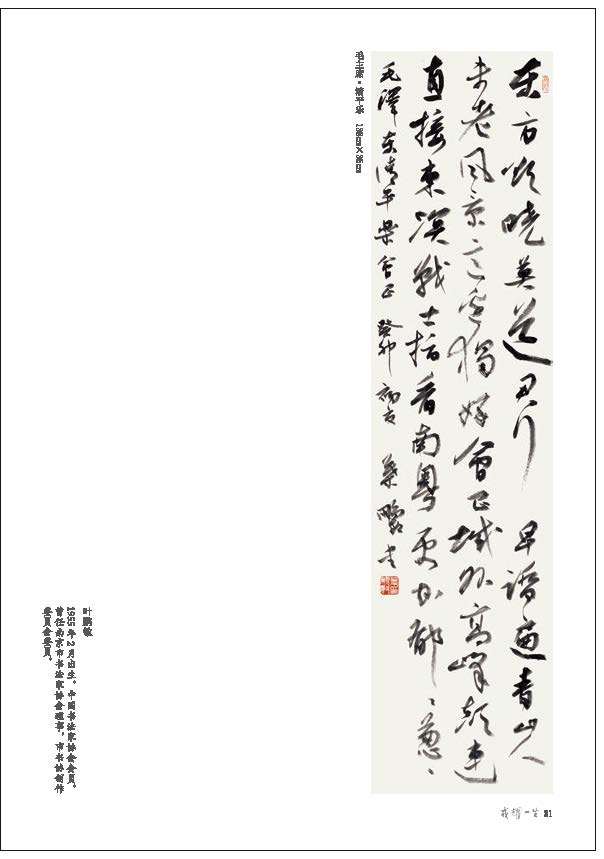 东方欲晓莫道君行早踏遍青山人
未老风景这边独好會昌城外高峰颠連
直接東溟戰士指看南粤更加郁〻葱〻
毛澤东清平樂會昌 癸卯初夏 葉鵬敏书
毛主席·清平乐
叶鹏敏
1955年2月出生。中国书法家协会会员。
曾任南京市书法家协会理事，市书协创作
委员会委员。
戎耀一生